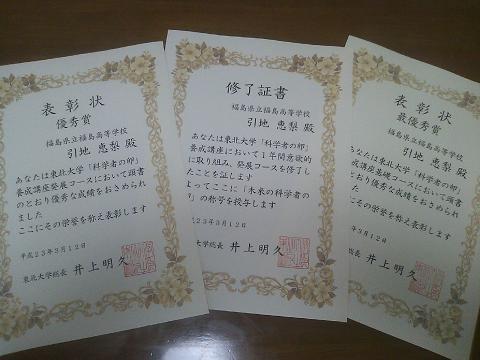 表彰状
優秀賞
福島県立福島高等学校
引地 恵梨 殿
あなたは東北大学「科学者の卵」
養成講座発展コースにおいて頭書
のとおり優秀な成績をおさめられ
ました
ここにその栄誉を称え表彰します
平成23年3月12日
東北大学総長 井上明久
修了証書
福島県立福島高等学校
引地 恵梨 殿
あなたは東北大学「科学者の卵」
養成講座において1年間意欲的
に取り組み、発展コースを修了し
たことを証します
よってここに「未来の科学者の
」の称号を授与します
23年3月12日
大学総長 井上明久
表彰状
最優秀賞
福島県立福島高等学校
引地 恵梨 殿
なたは東北大学「科学者の卵」
養成講座基礎コースにおいて頭書
とおり優秀な成績をおさめられ
た
にその栄誉を称え表彰します
年3月12日
総長 井上明久